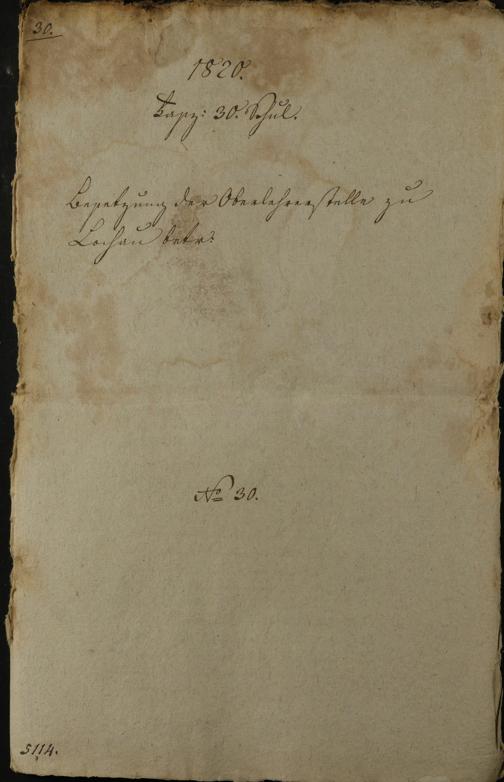 30.
1820.
Fasz: 30. Schul.
Besetzung der Oberlehrerstelle zu
Lochau betr:
No 30.
5114.